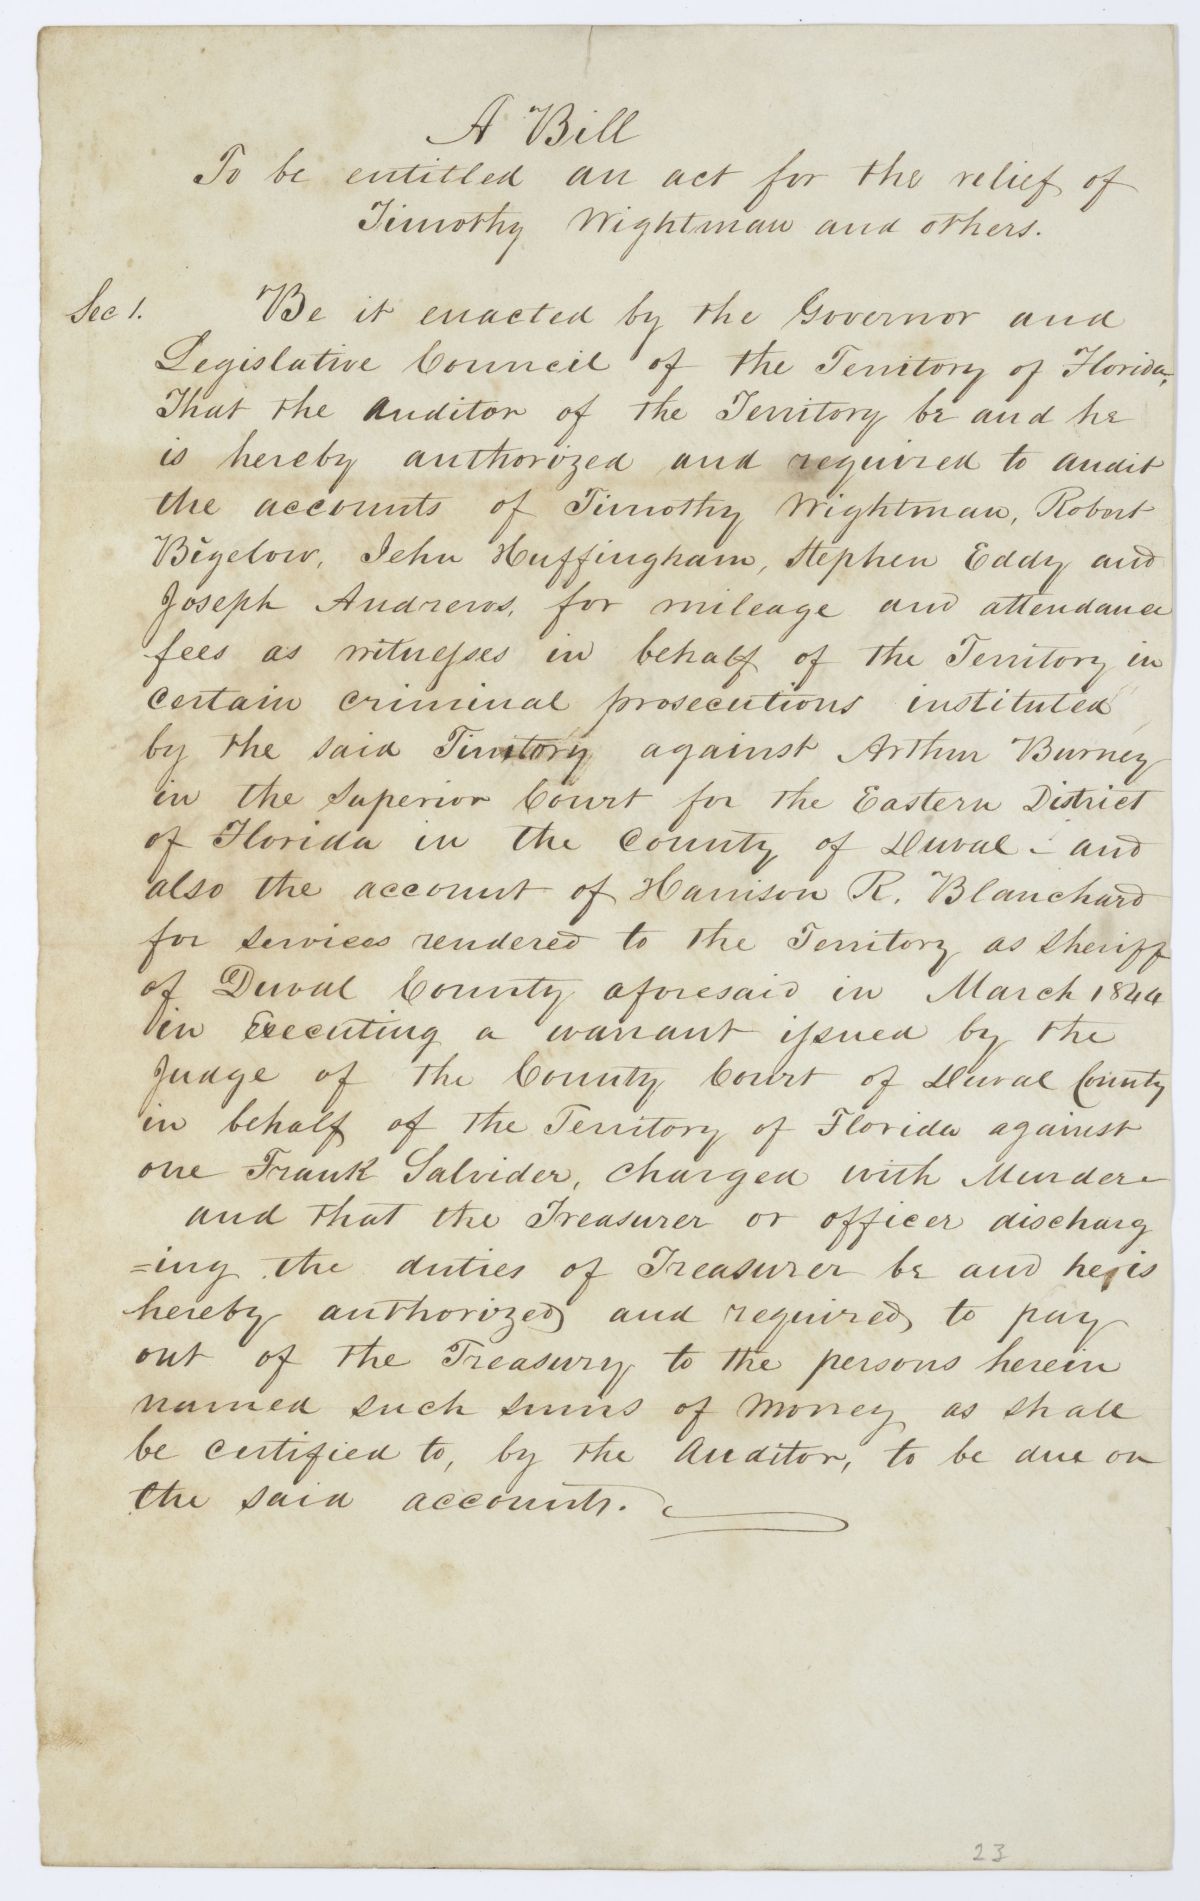 A Bill
To be entitled an act for the relief of
Timothy Wightman and others.
Sec 1. Be it enacted by the Governor and
Legislative Council of the Territory of Florida,
That the Auditor of the Territory be and he
is hereby authorized and required to audit
the accounts of Timothy Wightman, Robert
Bigelow, Jehu Huffingham, Stephen Eddy and
Joseph Andrews, for mileage and attendance
fees as witnesses in behalf of the Territory in
certain criminal prosecutions instituted
by the said Territory against Arthur Burney
in the Superior Court for the Eastern District
of Florida in the County of Duval - and
also the account of Harrison R. Blanchard
for services rendered to the Territory as Sheriff
of Duval County aforesaid in March 1844
in Executing a warrant issued by the
Judge of the County Court of Duval County
in behalf of the Territory of Florida against
one Frank Salvider, charged with Murder -
and that the Treasurer or officer discharg
=ing the duties of Treasurer be and he is
hereby authorized and required to pay
out of the Treasury to the persons herein
named such sums of Money as shall
be certified to, by the Auditor, to be due on
the said accounts.
23